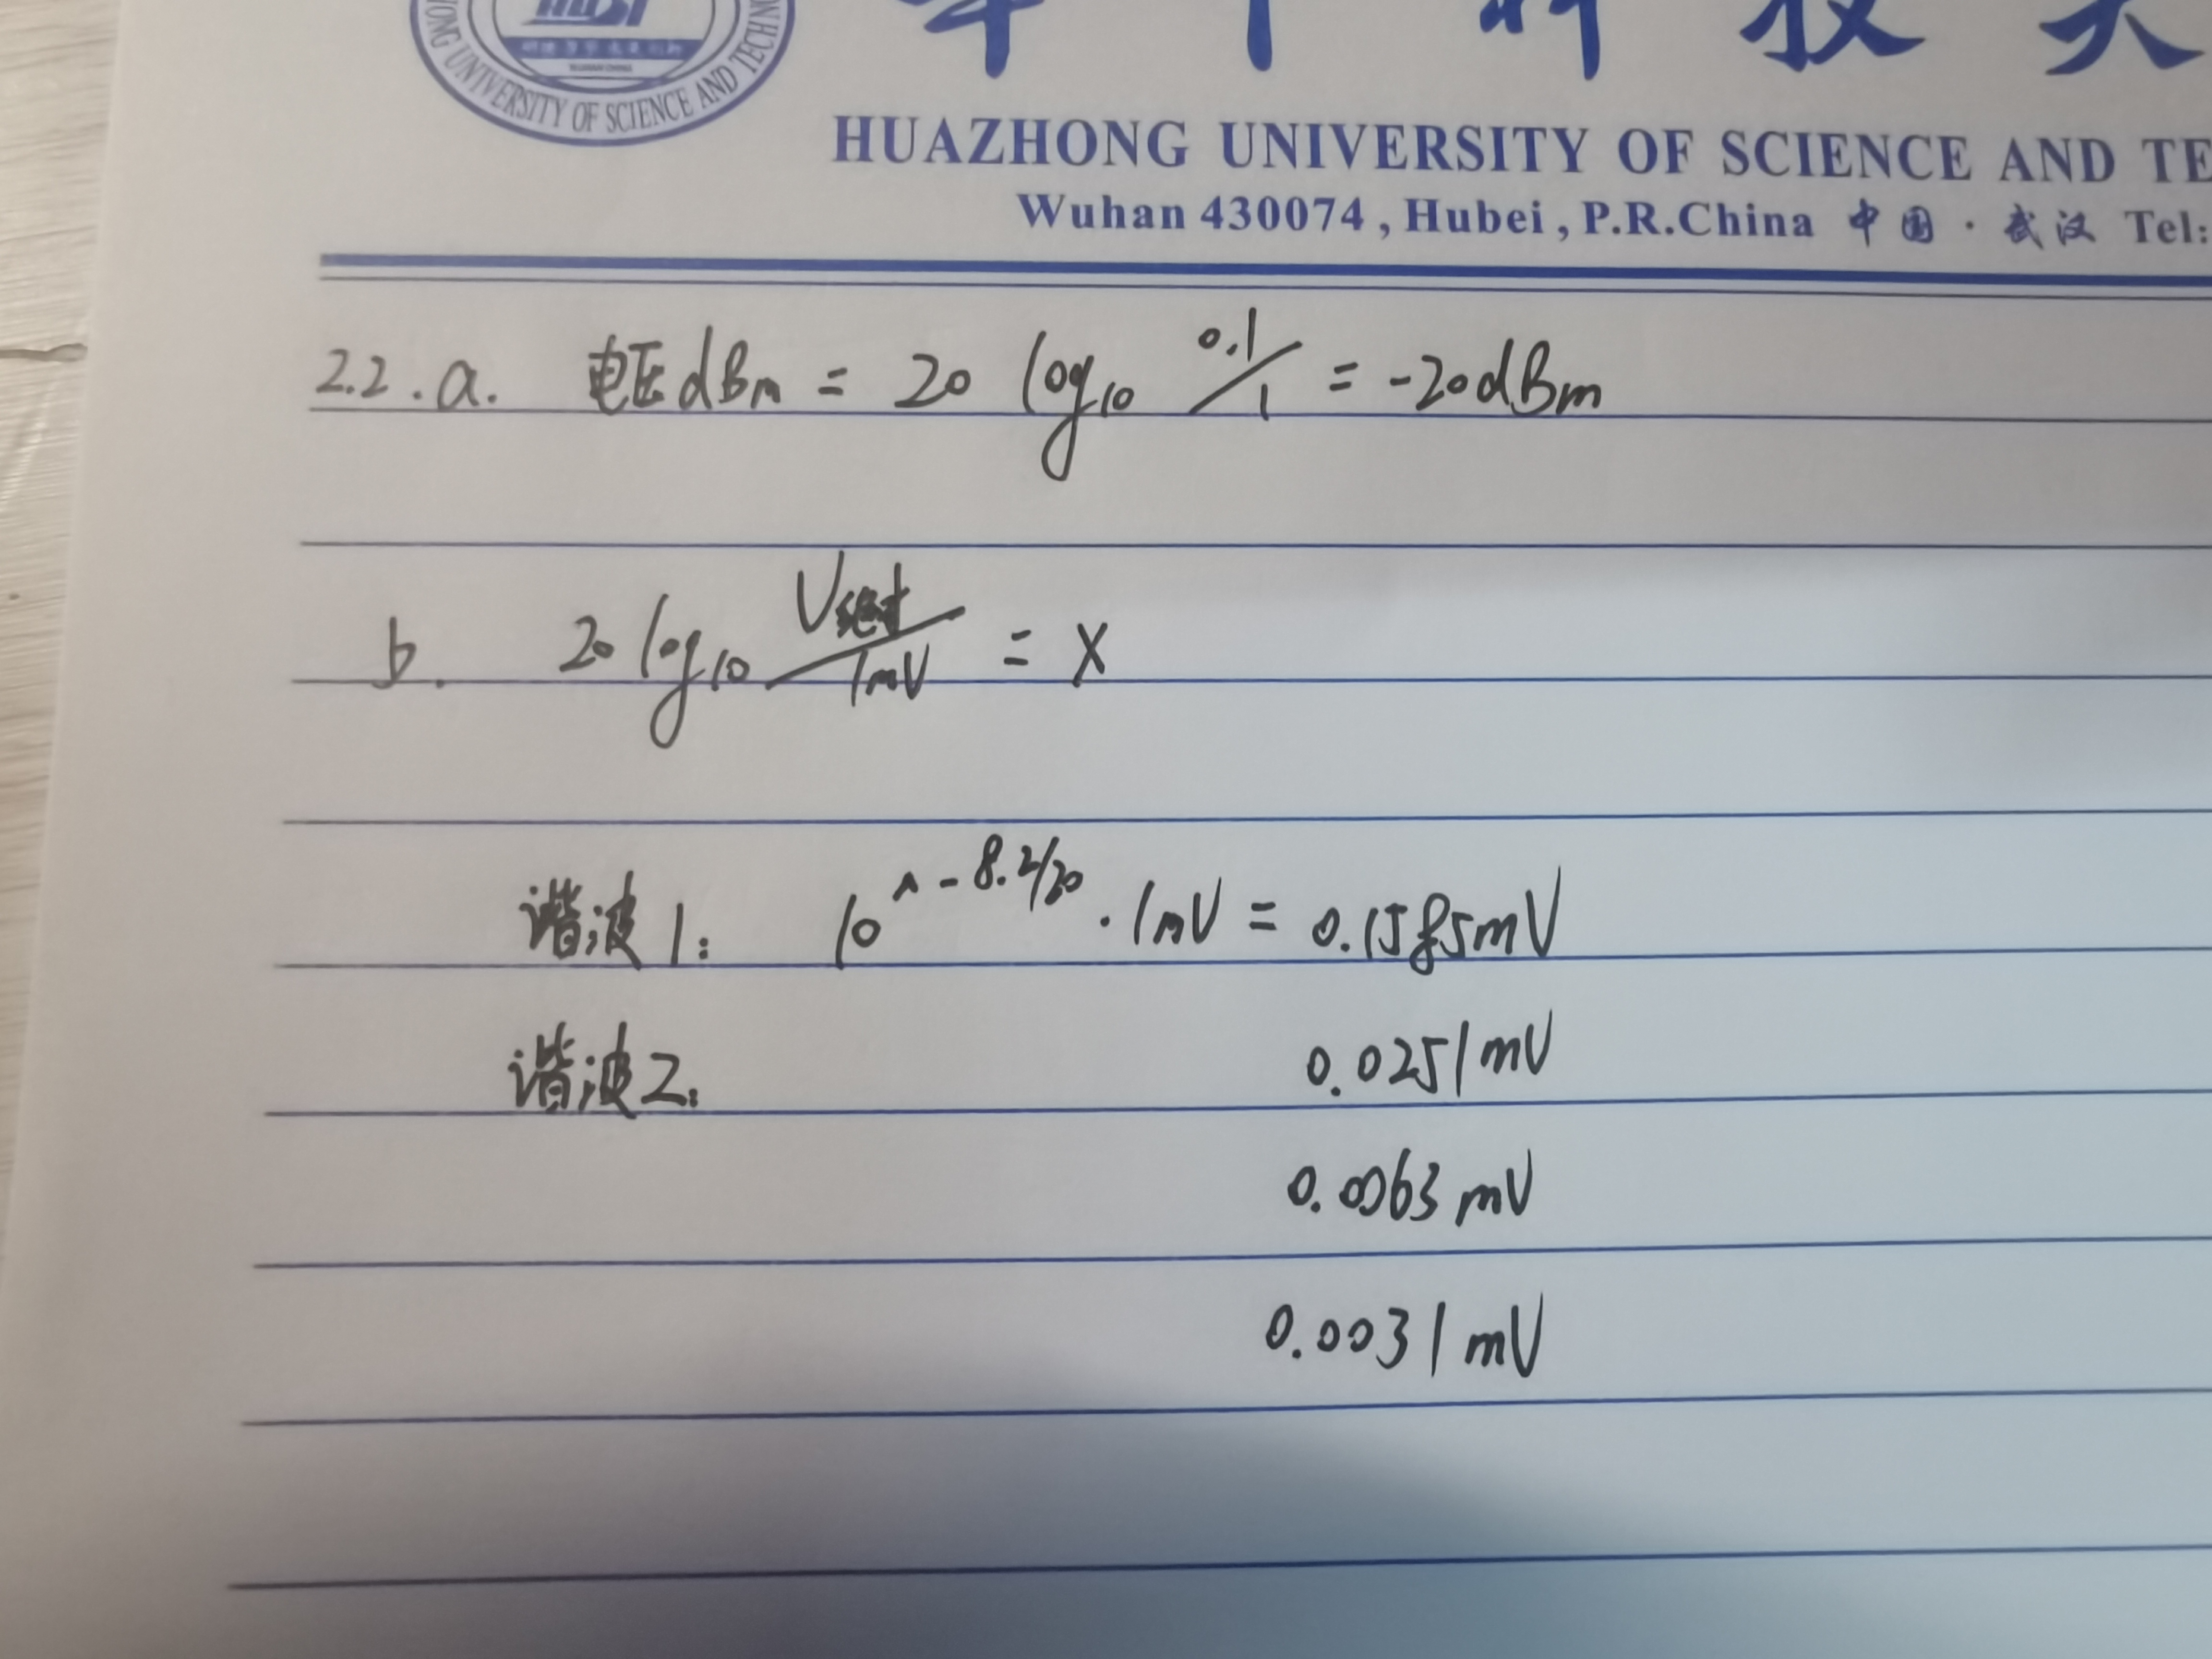 UNIVERSITY OF SCIENCE AND TECHN
HUAZHONG UNIVERSITY OF SCIENCE AND TE
Wuhan 430074, Hubei, P.R.China 中国·武汉 Tel:
2.2.a. 电压dBm = 20 log10 0.1/1 = -20dBm
b. 20 log10 V绝对/1mV = X
谐波1: 10^-8.2/20 · 1mV = 0.1585mV
谐波2: 0.0251mV
0.0063mV
0.0031mV